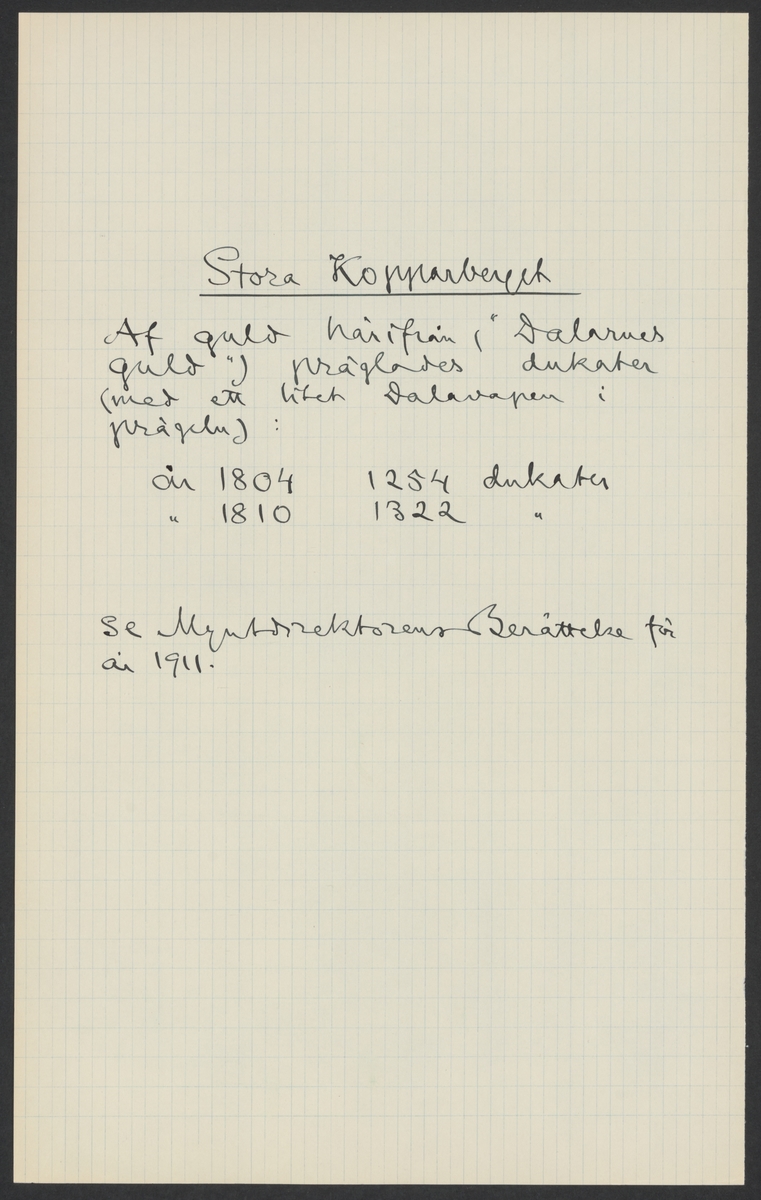 Stora Kopparberget
Af guld härifrån ("Dalarnes
guld") präglades dukater
(med ett litet Dalavapen i
prägeln) :
år 1804 1254 dukater
" 1810 1322 "
Se Myntdirektorens Berättelse för
år 1911.